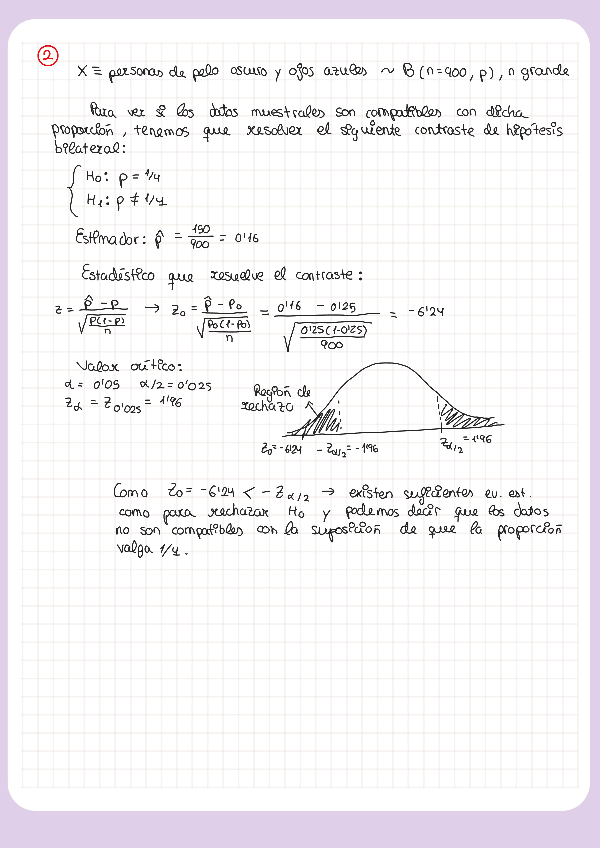 2
X ≡ personas de pelo oscuro y ojos azules ~ B(n=900, p), n grande
Para ver si los datos muestrales son compatibles con dicha
proporción, tenemos que resolver el siguiente contraste de hipótesis
bilateral:
H₀: p = 1/4
H₁: p ≠ 1/4
Estimador: p̂ = 150/900 = 0'16
Estadéstico que resuelve el contraste:
z = (p̂ - p)/√(p(1-p)/n) → Z₀ = (p̂ - p₀)/√(p₀(1-p₀)/n) = (0'16 - 0'25)/√(0'25(1-0'25)/900) = -6'24
Valor crítico:
α = 0'05 α/2 = 0'025
Z_α = Z_0'025 = 1'96
Región de
rechazo
Z₀ = -6'24 -Z_α/2 = -1'96 Z_α/2 = 1'96
Como Z₀ = -6'24 < -Z_α/2 → existen suficientes ev. est.
como para rechazar H₀ y podemos decir que los datos
no son compatibles con la suposición de que la proporción
valga 1/4.